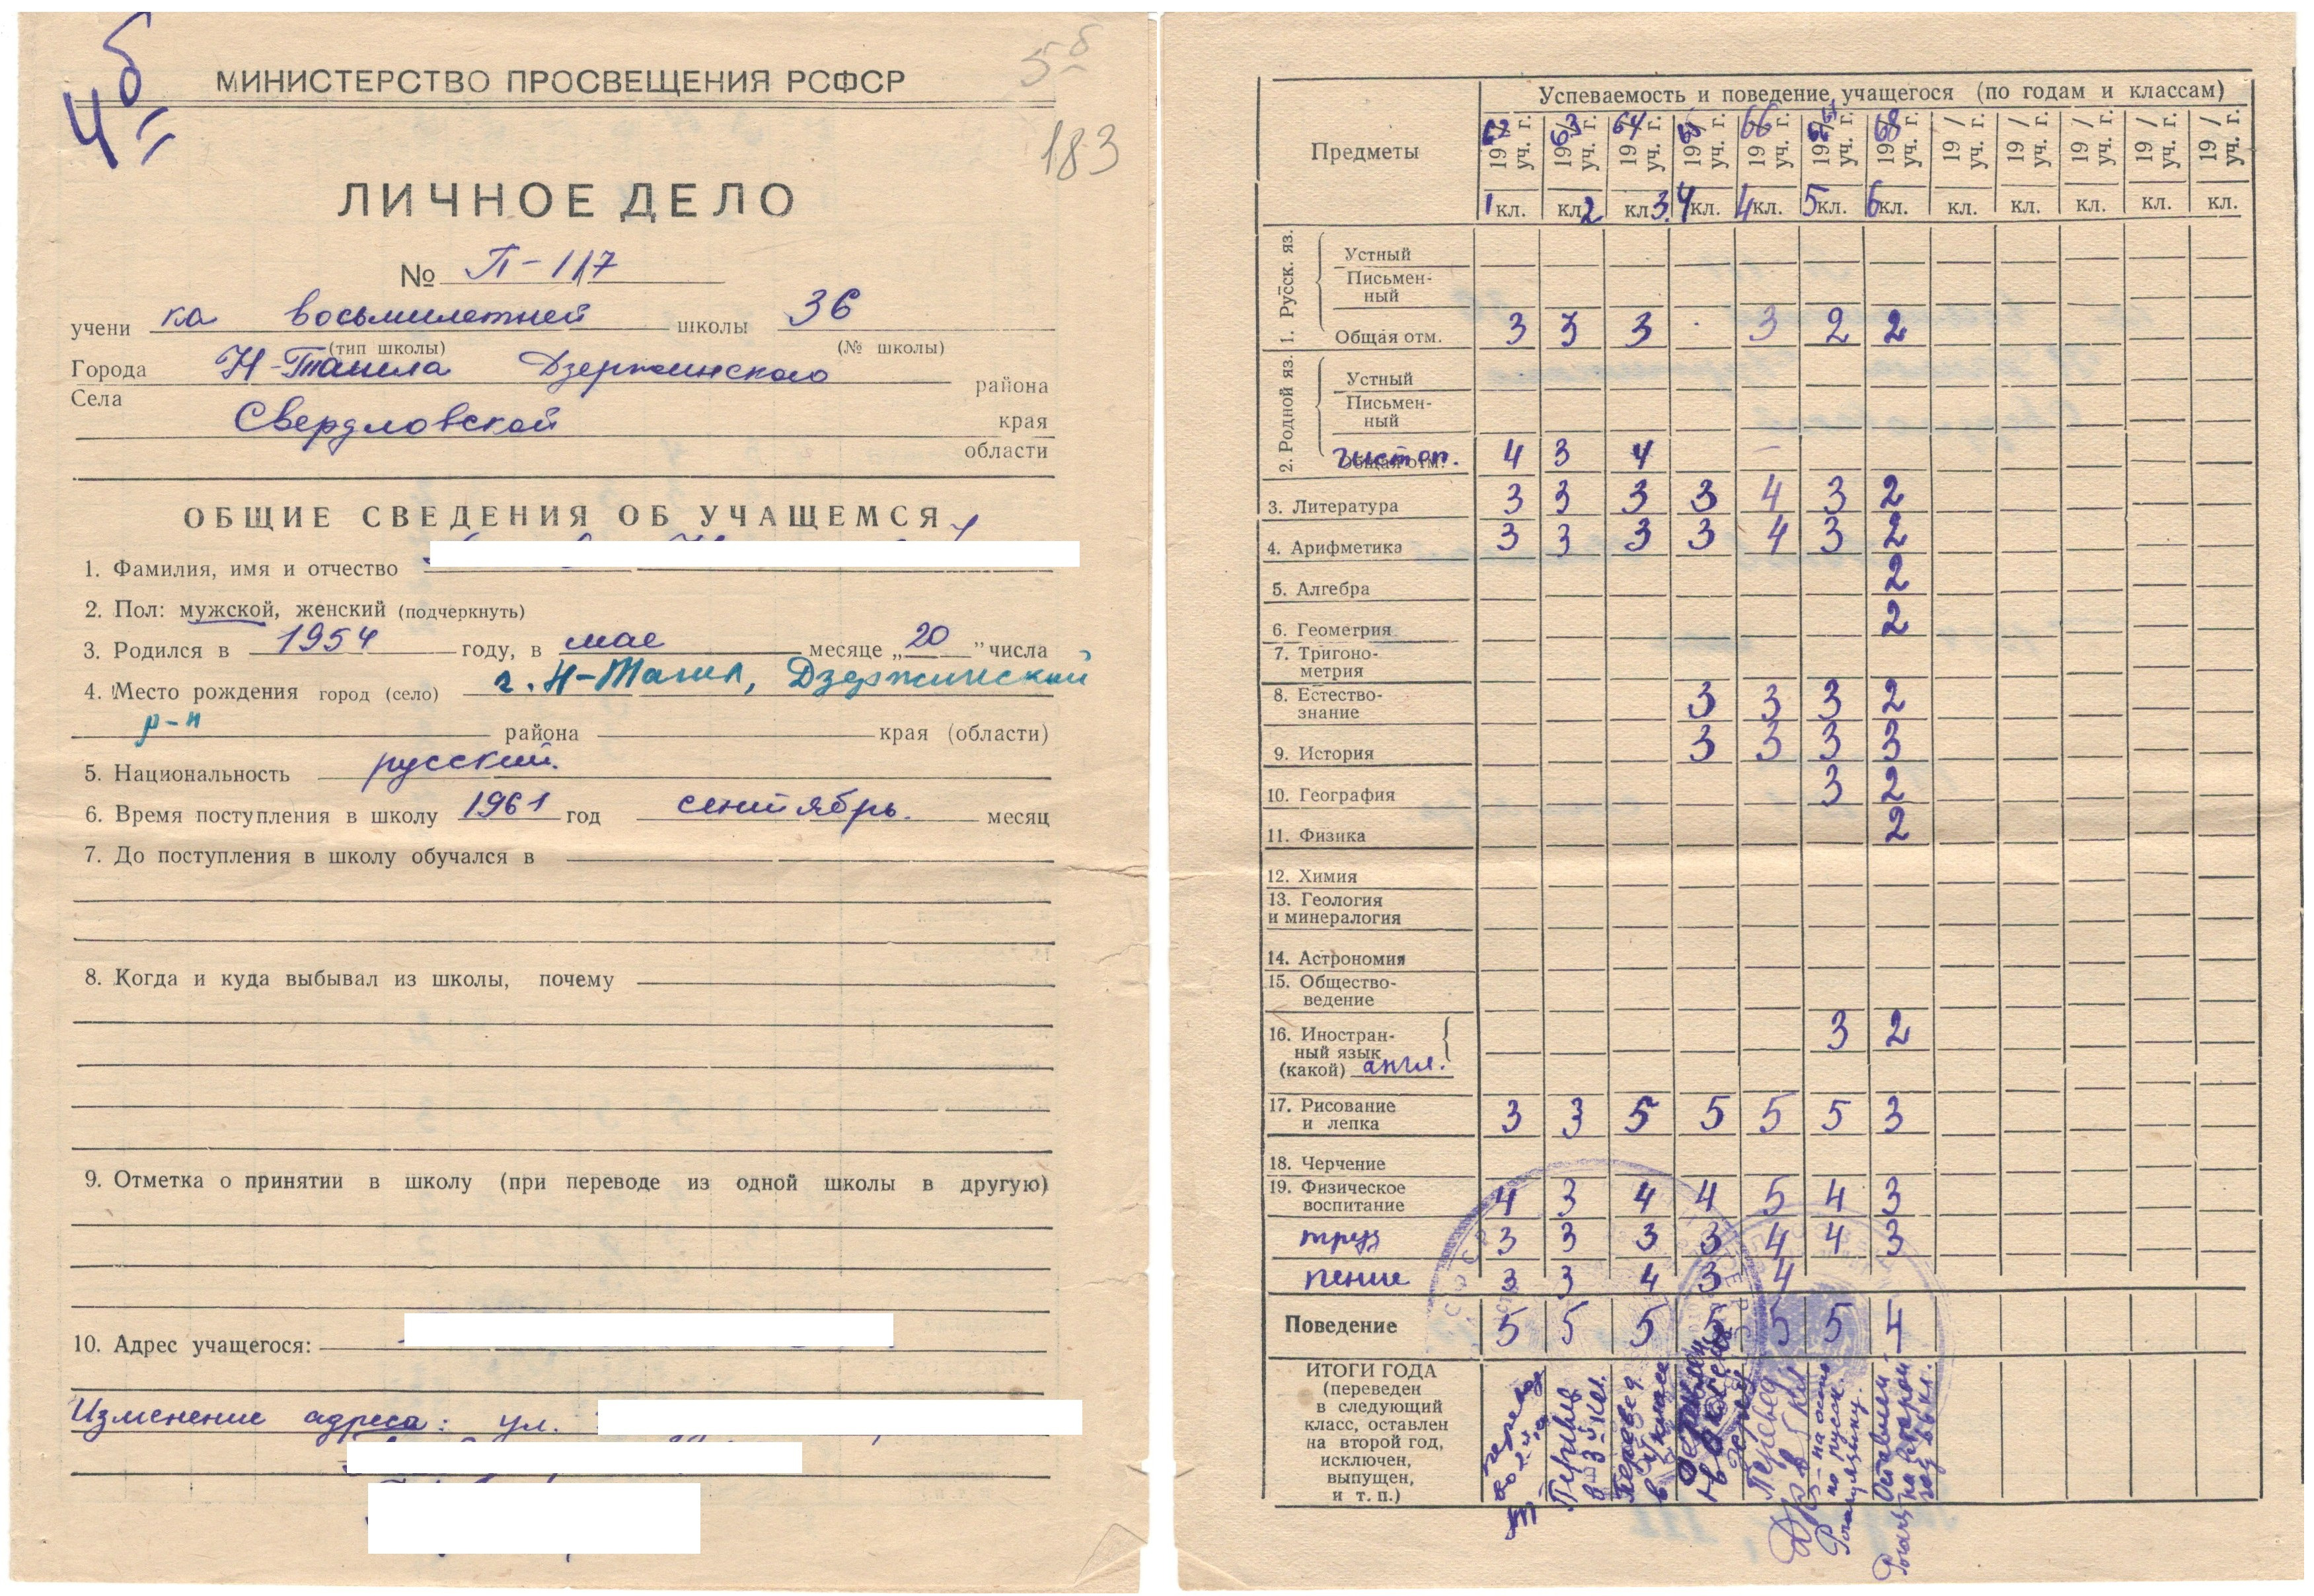 4б
5б
МИНИСТЕРСТВО ПРОСВЕЩЕНИЯ РСФСР
183
ЛИЧНОЕ ДЕЛО
№ П-117
учени ка восьмилетней школы 36
(тип школы) (№ школы)
Города Н-Тагила Дзержинского района
Села
Свердловской края
области
ОБЩИЕ СВЕДЕНИЯ ОБ УЧАЩЕМСЯ
1. Фамилия, имя и отчество
2. Пол: мужской, женский (подчеркнуть)
3. Родился в 1954 году, в мае месяце „20" числа
4. Место рождения город (село) г. Н-Тагил, Дзержинский
р-н района край (области)
5. Национальность русский.
6. Время поступления в школу 1961 год сентябрь. месяц
7. До поступления в школу обучался в
8. Когда и куда выбывал из школы, почему
9. Отметка о принятии в школу (при переводе из одной школы в другую)
10. Адрес учащегося:
Изменение адреса: ул.
Предметы
Успеваемость и поведение учащегося (по годам и классам)
19 / уч. г. 19 63/ уч. г. 19 64/ уч. г. 19 / уч. г. 19 66/ уч. г. 19 / уч. г. 19 68/ уч. г. 19 / уч. г. 19 / уч. г. 19 / уч. г. 19 / уч. г. 19 / уч. г.
1 кл. кл 2 кл 3. 4 кл. 4 кл. 5 кл. 6 кл. кл. кл. кл. кл. кл.
1. Русск. яз.
Устный
Письмен-
ный
Общая отм. 3 3 3 3 2 2
2. Родной яз.
Устный
Письмен-
ный
чистоп. 4 3 4
3. Литература 3 3 3 3 4 3 2
4. Арифметика 3 3 3 3 4 3 2
5. Алгебра 2
6. Геометрия 2
7. Тригоно-
метрия
8. Естество-
знание 3 3 3 2
9. История 3 3 3 3
10. География 3 2
11. Физика 2
12. Химия
13. Геология
и минералогия
14. Астрономия
15. Общество-
ведение
16. Иностран-
ный язык 3 2
(какой) англ.
17. Рисование
и лепка 3 3 5 5 5 5 3
18. Черчение
19. Физическое
воспитание 4 3 4 4 5 4 3
труд 3 3 3 3 4 4 3
пение 3 3 4 3 4
Поведение 5 5 5 5 5 5 4
ИТОГИ ГОДА
(переведен
в следующий
класс, оставлен
на второй год,
исключен,
выпущен,
и т. п.)
Перевед.
в 3й кл.
Перевед.
в 4 класс
Перевед
в 5 кл
на осень
по русск.
Оставлен
на второй
год в 6 кл.